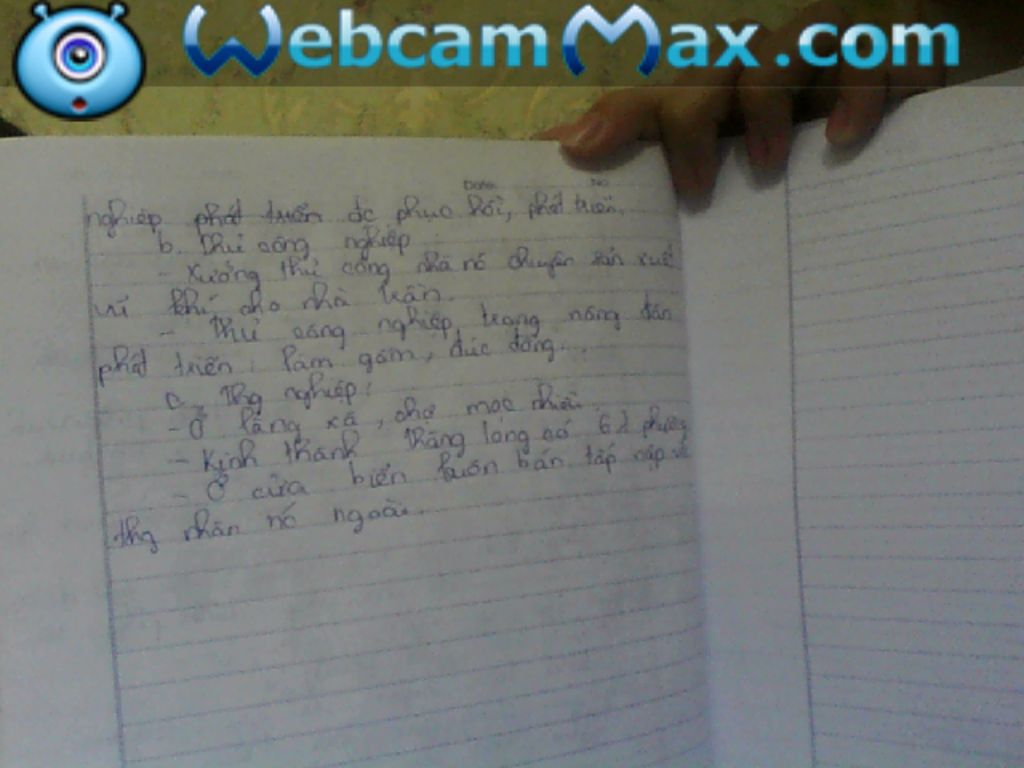 WebcamMax.com
Date No
nghiệp phát triển đc phục hồi, phát triển.
b. Thủ công nghiệp
- Xưởng thủ công nhà nó chuyên sản xuất
vũ khí cho nhà trần.
- Thủ công nghiệp trong nông dân
phát triển: làm gốm, đúc đồng...
c. Thg nghiệp:
- Ở làng xã, chợ mọc nhiều.
- Kinh thành Thăng long có 61 phường
- Ở cửa biển buôn bán tấp nập vs
thg nhân nó ngoài.